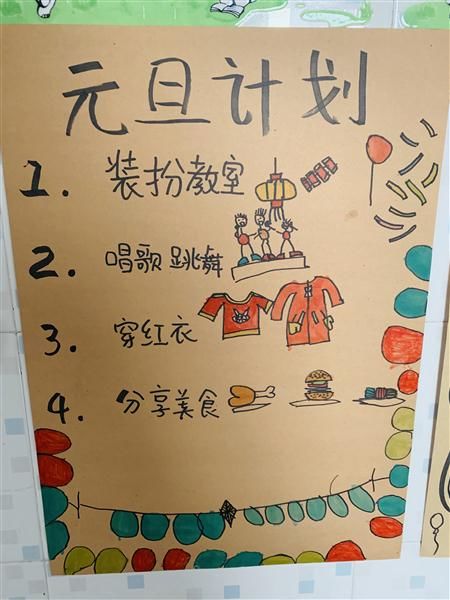 元旦计划
1. 装扮教室
2. 唱歌 跳舞
3. 穿红衣
4. 分享美食